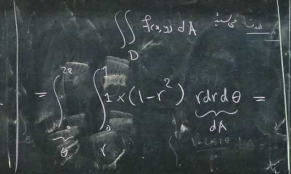 ∬_D f(x,y) dA
= ∫_0^{2π} ∫_0^1 1 × (1-r²) r dr dθ =
θ r dA